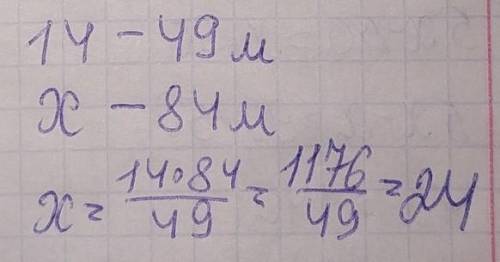 14 – 49 м
х – 84 м
х = 14·84/49 = 1176/49 = 24